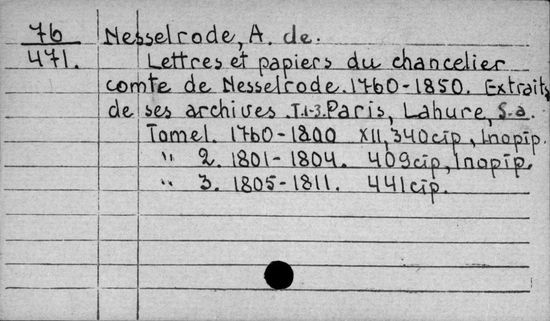 76 Nesselrode, A. de.
471. Lettres et papiers du chancelier
comte de Nesselrode. 1760-1850. Extraits
de ses archives. T.1-3. Paris, Lahure, s.a.
Tome 1. 1760-1800 XII, 340 стр, 1 портр.
" 2. 1801-1804. 409 стр, 1 портр.
" 3. 1805-1811. 441 стр.